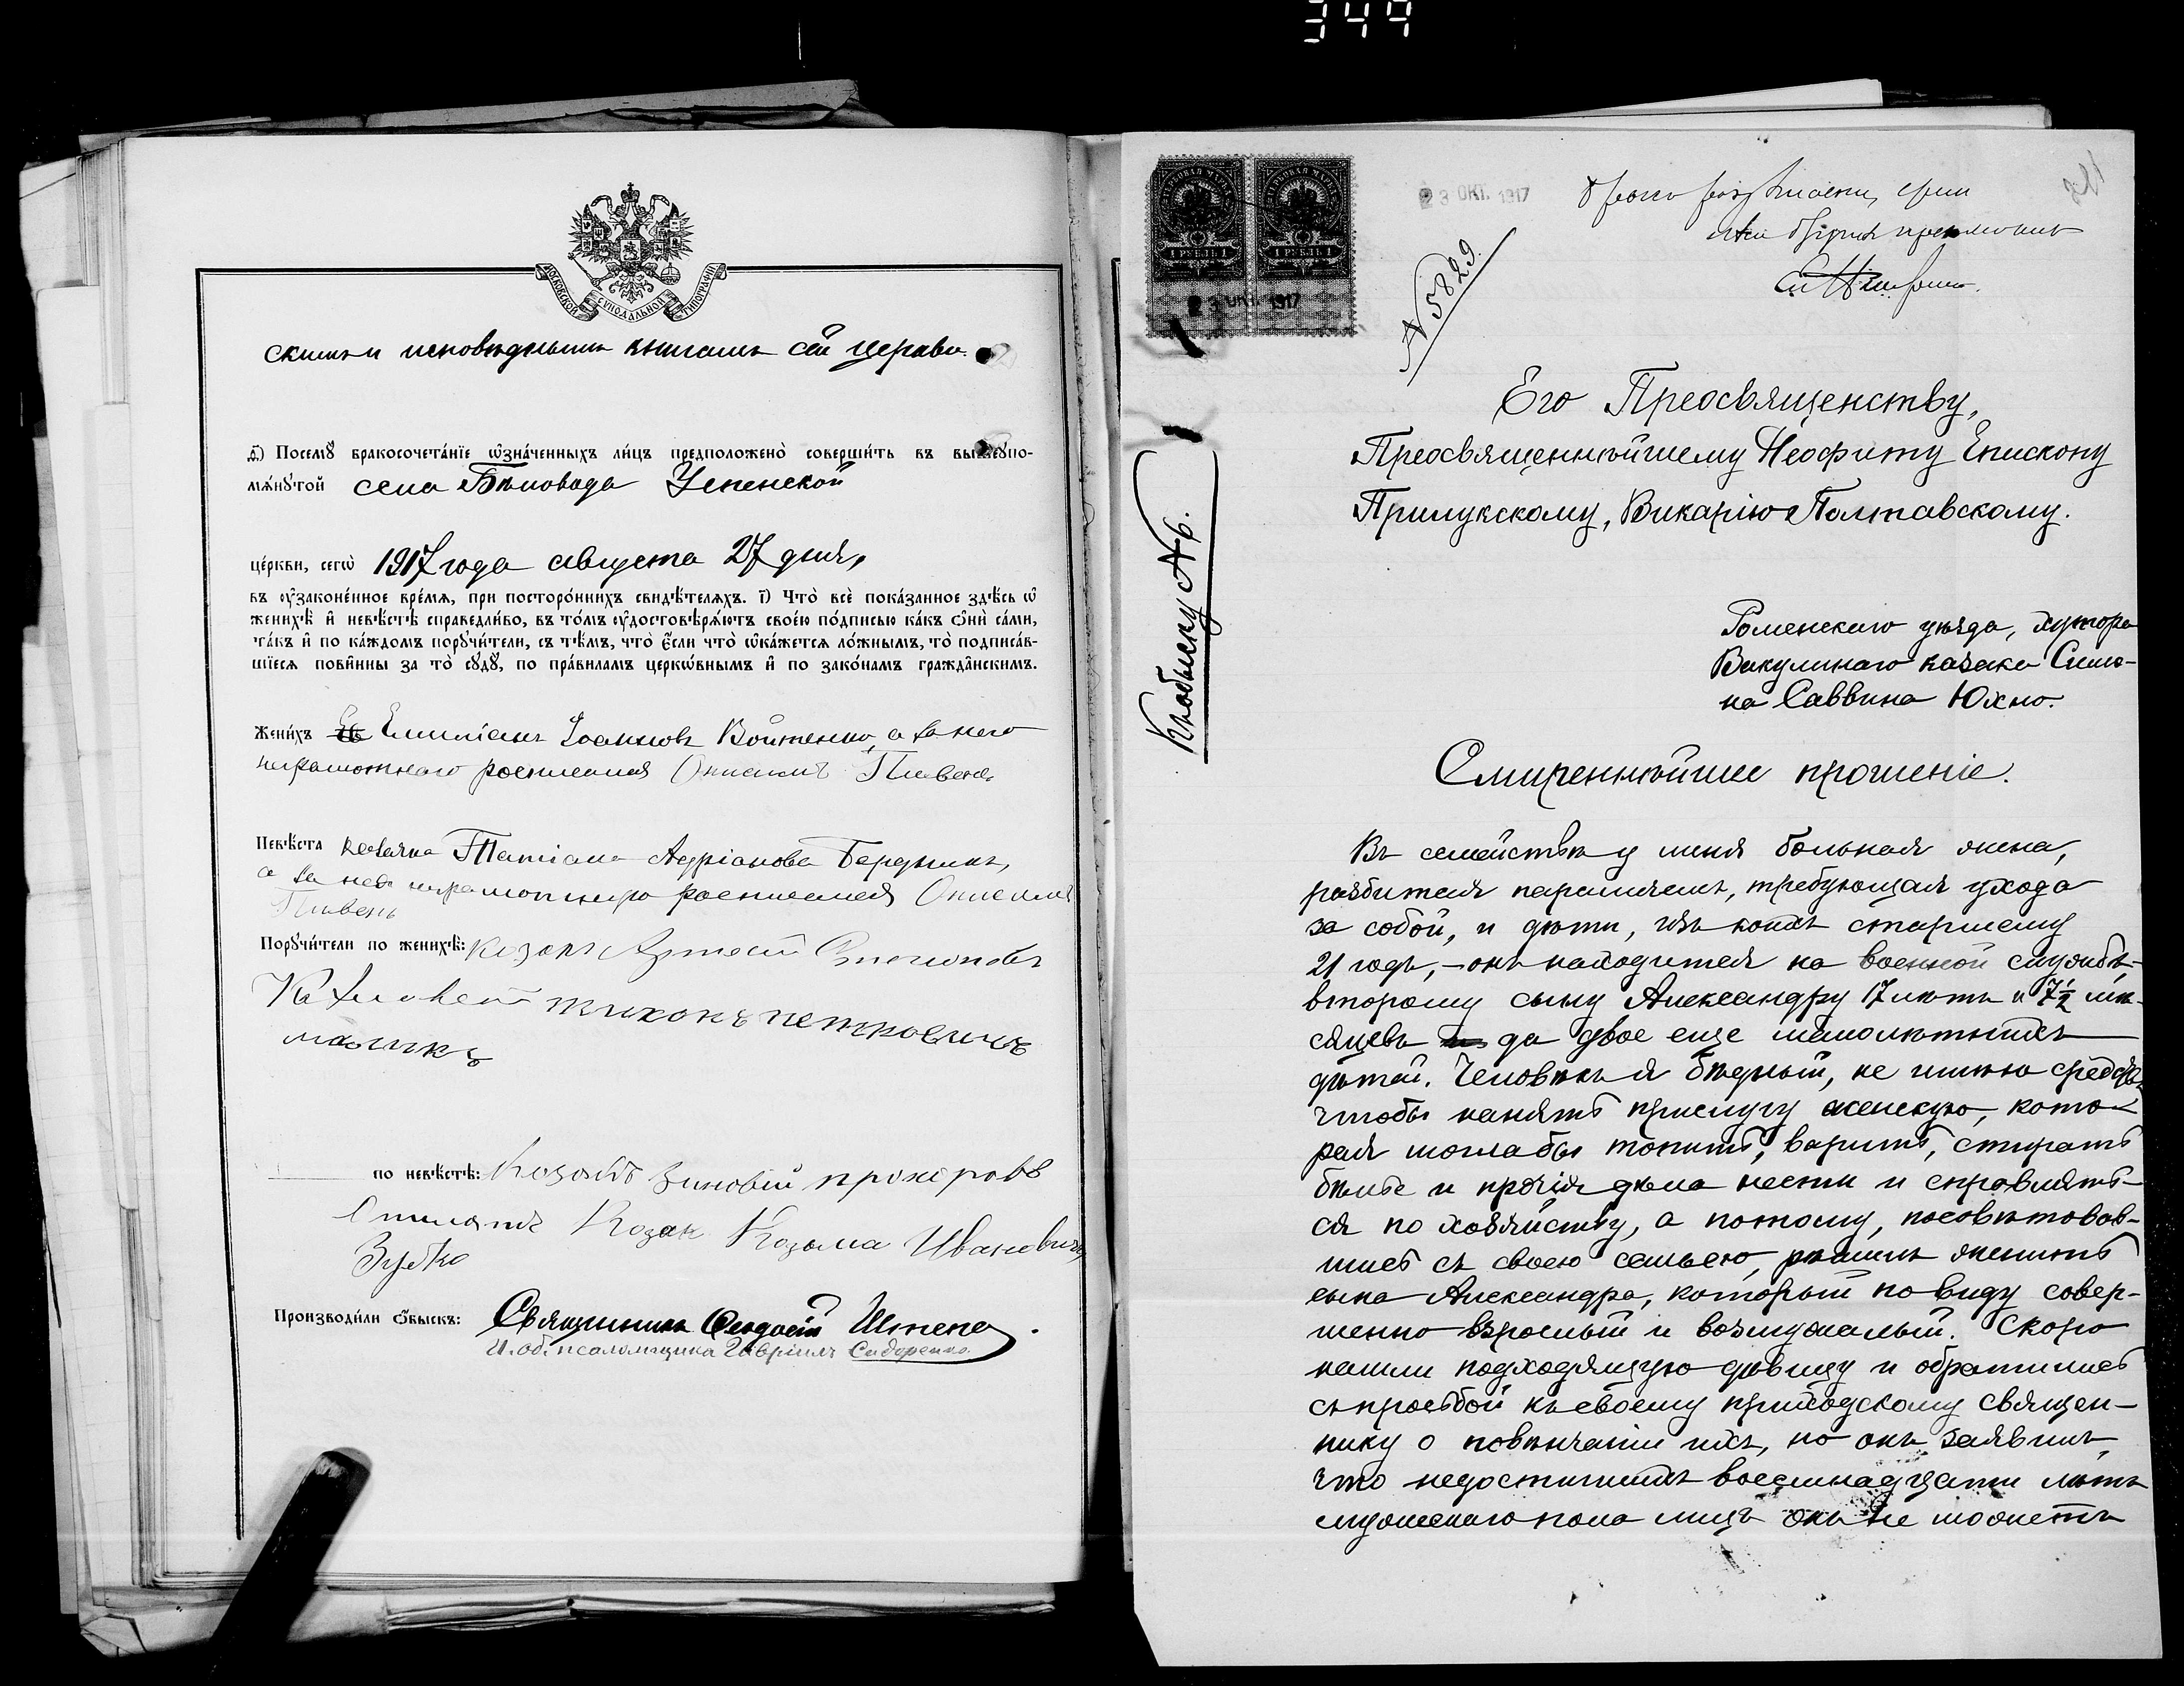 344
МОСКОВСКОЙ СѴНОДАЛЬНОЙ ТИПОГРАФІИ
скими и исповѣдными книгами сей церкви.
д҃і) Посемꙋ̀ бракосочета́нїе ѡ҆зна́ченныхъ ли́цъ предположено̀ соверши́ть въ вышеупо-
мѧ́нꙋтой села Бѣловода Успенской
це́ркви, сегѡ̀ 1917 года августа 27 дня,
въ ᲂу҆законе́нное вре́мѧ, при посторо́ннихъ свидѣ́телѧхъ. і҃) Что̀ всѐ пока́занное здѣ́сь ѡ҆
женихѣ̀ и҆ невѣ́стѣ справедли́во, въ то́мъ ᲂу҆достовѣрѧ́ютъ свое́ю по́дписью ка́къ ѻ҆нѝ са́ми,
та́къ и҆ по ка́ждомъ порꙋчи́тели, съ тѣ́мъ, что̀ є҆́сли что̀ ѡ҆ка́жетсѧ ло́жнымъ, то̀ подписа́в-
шїесѧ пови́нны за то̀ сꙋдꙋ̀, по пра́виламъ церкѡ́внымъ и҆ по зако́намъ гражда́нскимъ.
Жени́хъ Емиліанъ Іоанновъ Войтенко, а за него
неграмотнаго росписался Онисимъ Пивень
Невѣ́ста козачка Татіана Адріанова Бардакъ,
а за нея неграмотную росписался Онисимъ
Пивень
Порꙋчи́тели по женихѣ̀: козакъ Артемій
тихонъ петровичъ
маликъ
по невѣ́стѣ: Козакъ Зиновій прохоровъ
Козак Козьма Иванович
Зубко
Производи́ли ѻ҆́быскъ: Священникъ Феодосій Штепа.
И. об. псаломщика Гавріилъ Сидоренко.
ГЕРБОВАЯ МАРКА ГЕРБОВАЯ МАРКА
1 РУБЛЬ 1 1 РУБЛЬ 1
23 ОКТ. 1917
23 ОКТ. 1917
N 5829.
Къ обыску № 6.
Его Преосвященству,
Преосвященнѣйшему Неофиту Епископу
Прилукскому, Викарію Полтавскому.
Роменскаго уѣзда, хутора
Викулинаго казака Симо-
на Саввина Юхно.
Смиреннѣйшее прошеніе.
Въ семействѣ у меня больная жена,
разбитая параличемъ, требующая ухода
за собой, и дѣти, изъ коихъ старшему
21 годъ, – онъ находится на военной службѣ,
второму сыну Александру 17 лѣтъ и 7½ мѣ-
сяцевъ да двое еще малолѣтнихъ
дѣтей. Человѣкъ я бѣдный, не имѣю средствъ,
чтобы нанять прислугу женскую, кото-
рая могла бы топить, варить, стирать
бѣлье и прочія дѣла нести и справлять-
ся по хозяйству, а потому, посовѣтовав-
шись съ своею семьею, рѣшилъ женить
сына Александра, который по виду совер-
шенно взрослый и возмужалый. Скоро
нашли подходящую дѣвицу и обратились
съ просьбой къ своему приходскому священ-
нику о повѣнчаніи ихъ, но онъ заявилъ,
что недостигшихъ восемнадцати лѣтъ
мужескаго пола лицъ онъ не можетъ